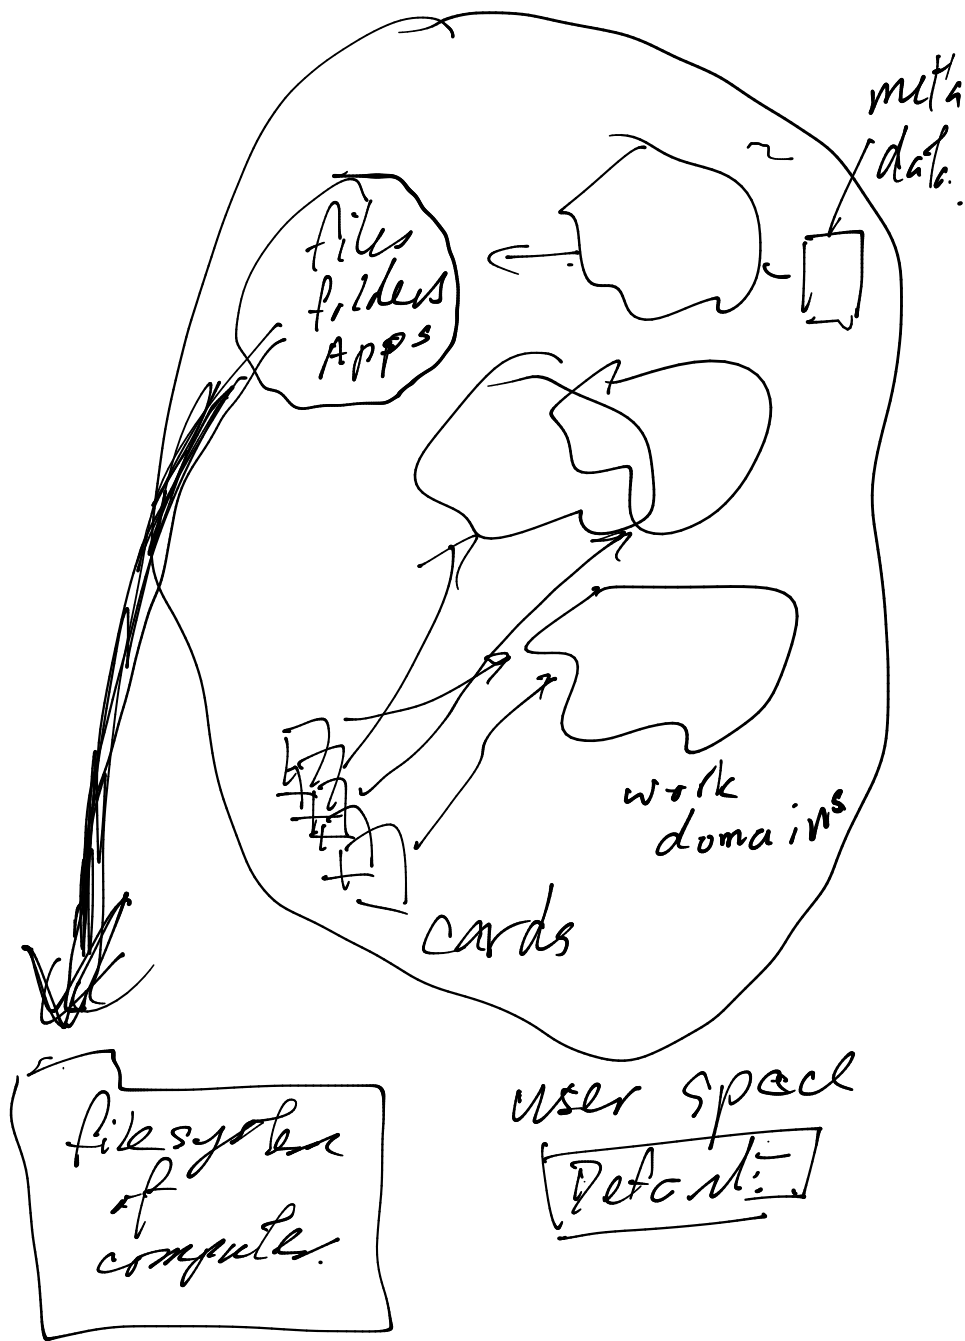 meta
data.
files
folders
Apps
work
domains
cards
user space
Default
filesystem
of
computer.